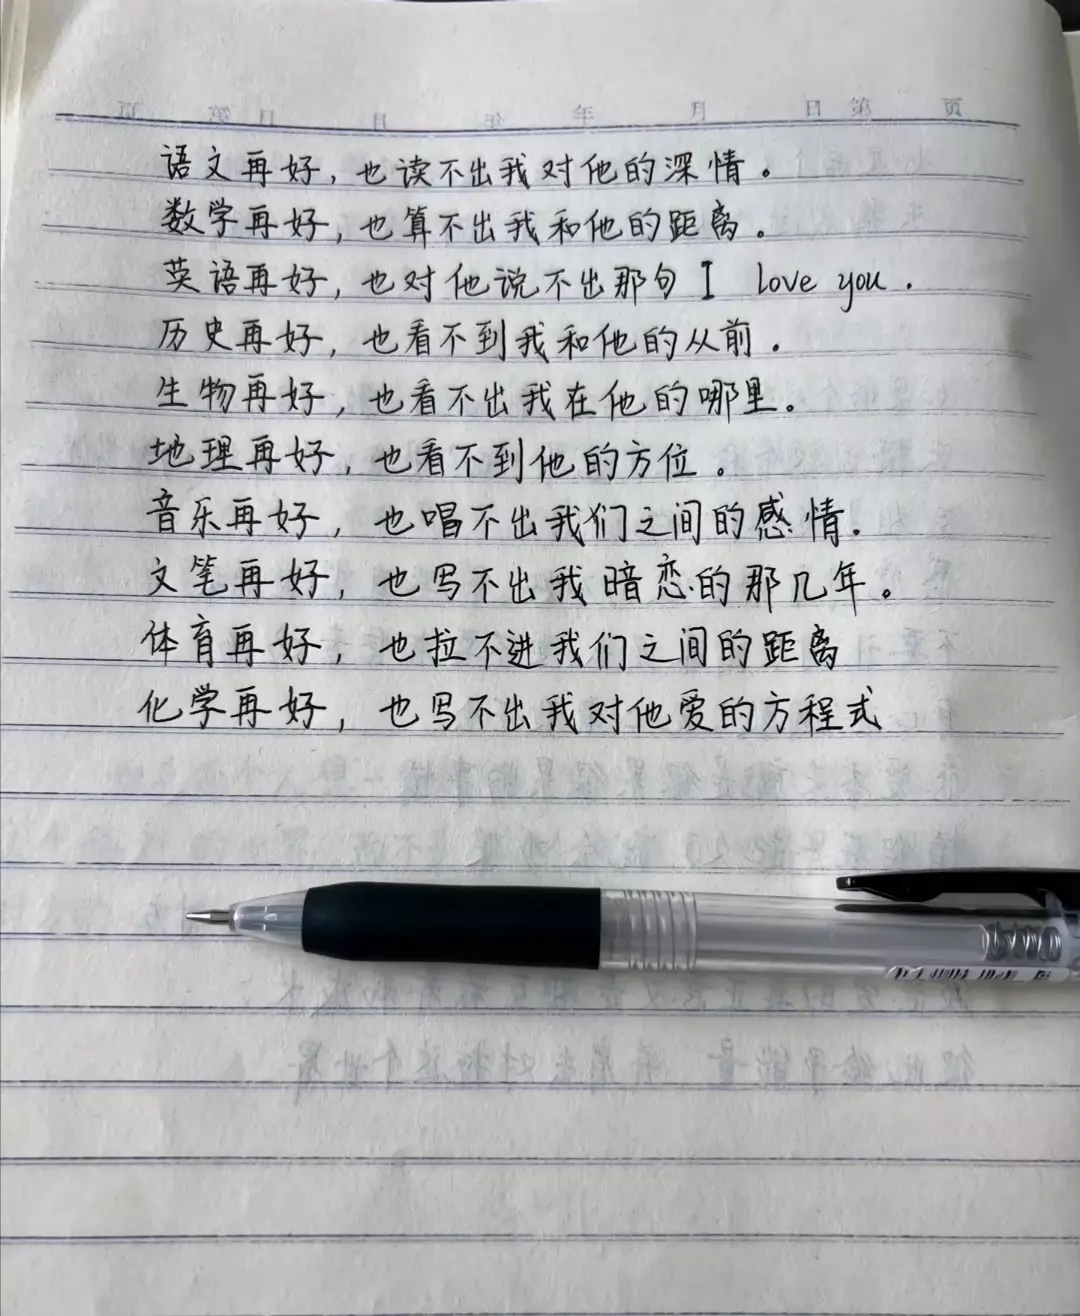 年 月 日 第 页
语文再好，也读不出我对他的深情。
数学再好，也算不出我和他的距离。
英语再好，也对他说不出那句 I love you .
历史再好，也看不到我和他的从前.
生物再好，也看不出我在他的哪里。
地理再好，也看不到他的方位。
音乐再好，也唱不出我们之间的感情.
文笔再好，也写不出我暗恋的那几年。
体育再好，也拉不进我们之间的距离
化学再好，也写不出我对他爱的方程式